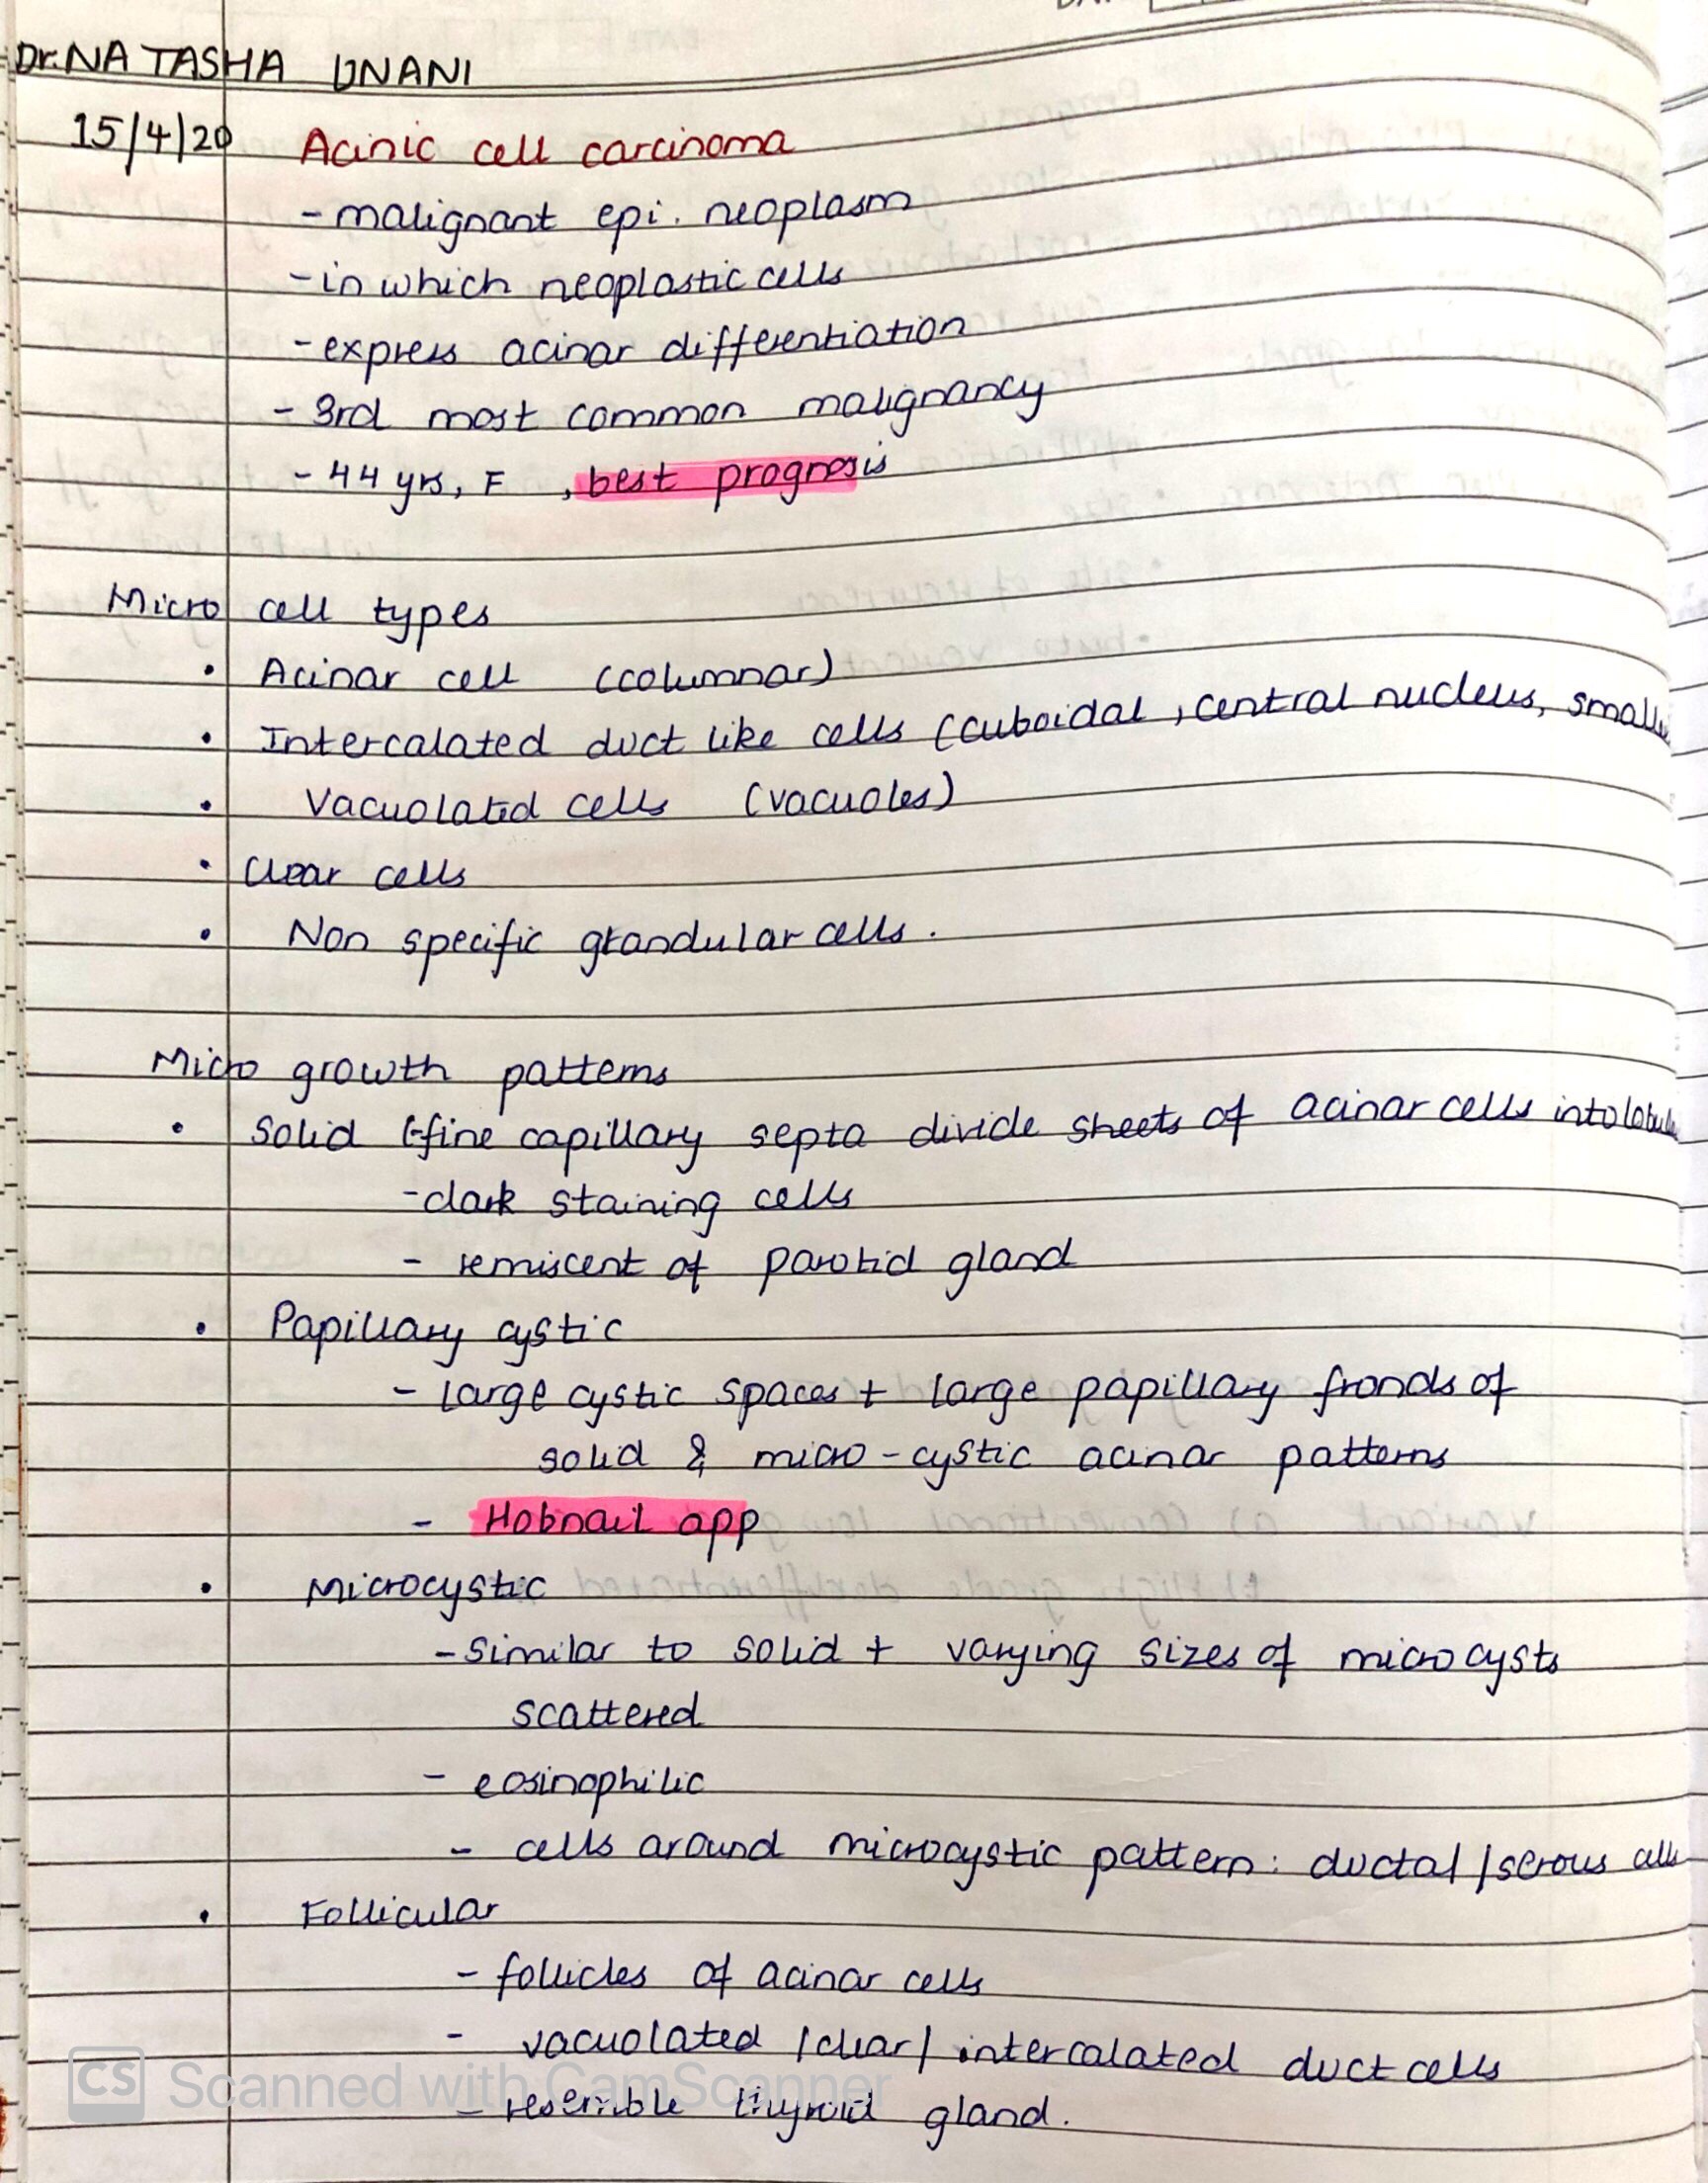 Dr. NATASHA UNANI
15/4/20 Acinic cell carcinoma
- malignant epi. neoplasm
- in which neoplastic cells
- express acinar differentiation
- 3rd most common malignancy
- 44 yrs, F , best prognosis
Micro cell types
• Acinar cell (columnar)
• Intercalated duct like cells (cuboidal, central nucleus, smaller
• Vacuolated cells (vacuoles)
• Clear cells
• Non specific glandular cells.
Micro growth patterns
• Solid - fine capillary septa divide sheets of acinar cells into lobules
- dark staining cells
- remiscent of parotid gland
• Papillary cystic
- large cystic spaces + large papillary fronds of
solid & micro-cystic acinar patterns
- Hobnail app
• Microcystic
- Similar to solid + varying sizes of microcysts
scattered
- eosinophilic
- cells around microcystic pattern: ductal / serous cells
• Follicular
- follicles of acinar cells
- vacuolated / clear / intercalated duct cells
- resemble thyroid gland.
CS Scanned with CamScanner